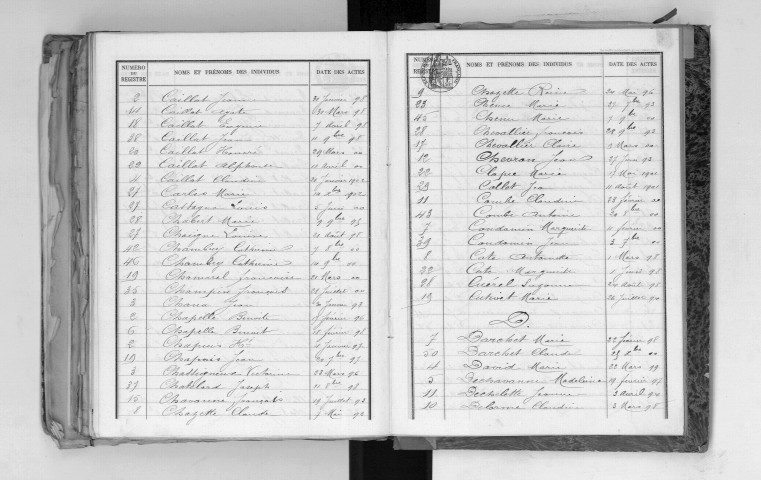 NUMÉRO DU REGISTRE NOMS ET PRÉNOMS DES INDIVIDUS DATE DES ACTES
3 Caillat Jean 31 Janvier 98
Caillat 30 Mars 98
18 Caillat Eugénie 7 Avril 98
38 Caillat Jean 11 9bre 98
20 Caillat Honoré 29 Mars 00
29 Caillat Alphonse 11 Avril 00
Caillat Claudine 21 Janvier 1902
Carles Marie 10 1902
27 Castagne Louis 5 Juin 00
28 Chabert Marie 9 9bre 95
27 Chaigne Louise 20 Août 98
42 Chambry Catherine 9 8bre 00
46 Chambry Catherine 10 9bre 00
19 Chamarel Françoise 21 Mars 00
35 Champin François 22 Juillet 00
3 Chana Jean Janvier 93
2 Chapelle Benoite Février 96
6 Chapelle Benoit Février 98
2 Chapuis Janvier 97
19 Chapuis Jean 20 9bre 97
3 Chasseigneux Victorine 23 Mars 96
37 Chatelard Joseph 21 8bre 98
15 Chavanne François 19 Juillet 93
8 Chazette Claude 7 Mai 92
NUMÉRO DU REGISTRE NOMS ET PRÉNOMS DES INDIVIDUS DATE DES ACTES
9 Chazette Reine 20 Mai 96
23 Chenu Marie 27 7bre 93
45 Chenu Marie 9 9bre 00
28 Chevallier François 22 9bre 92
17 Chevallier Claire 9 Mars 00
12 Chevron Jean 27 Juin 92
22 Clapie Marie Mai 1901
29 Collet Jean 11 Août 1901
11 Combe Claudine 23 Février 00
43 Combe Antoine 20 8bre 00
7 Condamin Marguerite 11 Février 00
39 Condamin Jean 3 7bre 00
8 Cote Antoinette Mars 98
22 Cote Marguerite Avril 98
28 Suzanne 20 Août 98
19 Marie 26 Juillet 90
D.
7 Barchet Marie 22 Février 98
50 Barchet Claude 23 Xbre 00
4 David Marie 22 Mars 99
5 Deschavanne Madeleine 19 Février 97
11 Dechelette Jeanne 3 Avril 90
10 Delorme Claudine 2 Mars 98